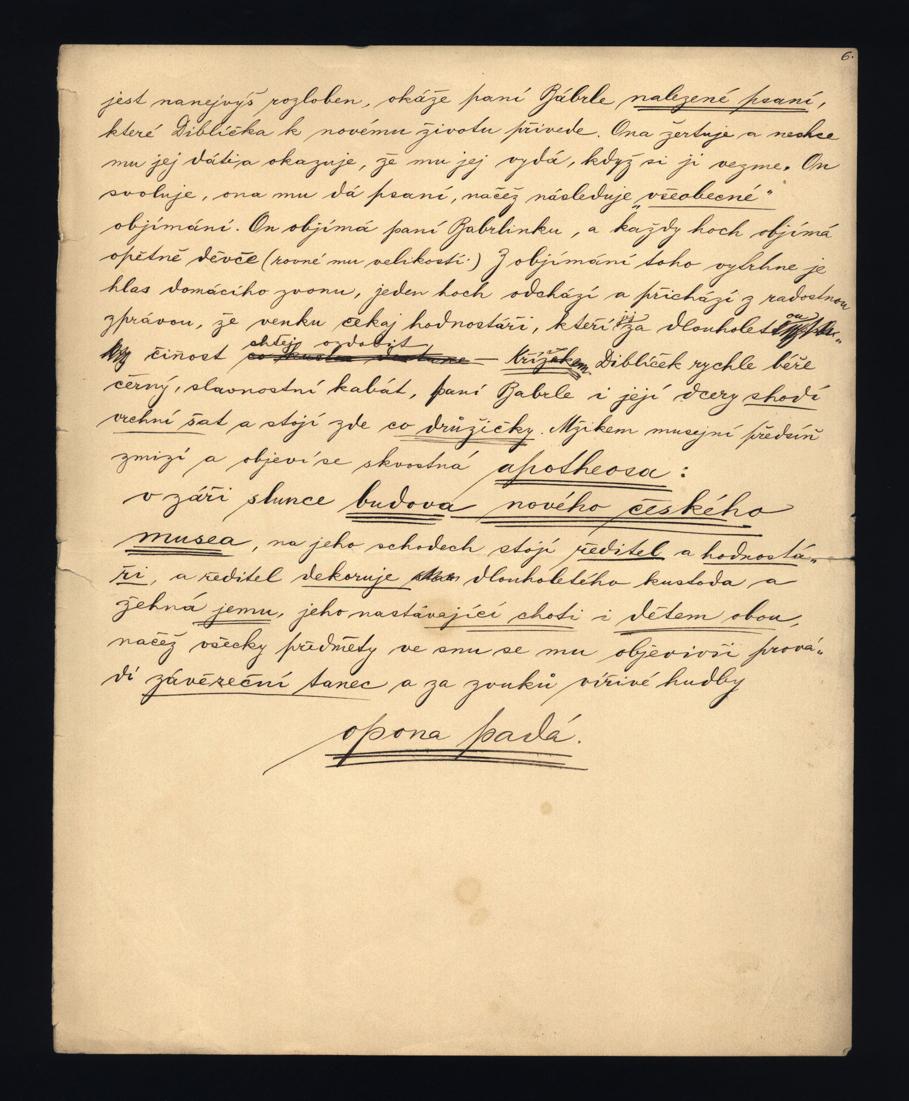 6.
jest nanejvýš rozloben, okáže paní Bábrle nalezené psaní,
které Diblíčka k novému životu přivede. Ona žertuje a nechce
mu jej dáti, a okazuje, že mu jej vydá, když si ji vezme. On
svoluje, ona mu dá psaní, načež následuje „všeobecné"
objímání. On objímá paní Babrlinku, a každý hoch objímá
opětně děvče (rovné mu velikostí.) Z objímání toho vytrhne je
hlas domácího zvonu, jeden hoch odchází a přichází z radostnou
zprávou, že venku čekaj hodnostáři, kteří jej za dlouholetou
chtěji ozdobit
činost křížkem. Diblíček rychle béře
černý, slavnostní kabát, paní Babrle i její dcery shodí
vrchní šat a stojí zde co družičky. Mžikem musejní předsíň
zmizí a objeví se skvostná apotheosa:
v záři slunce budova nového českého
musea, na jeho schodech stojí ředitel a hodnostá„
ři, a ředitel dekoruje dlouholetého kustoda a
žehná jemu, jeho nastávající choti i dětem obou,
načež všecky předměty ve snu se mu objevivší prová„
dí závěreční tanec a za zvuků vířivé hudby
opona padá.